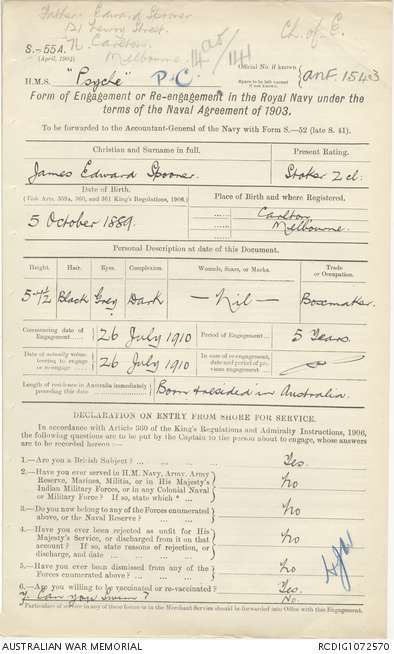 Father. Edward Spooner
121 Street.
N. Carlton
Melbourne
Ch. of E.
S.—55A.
(April, 1904)
H.M.S. "Psyche" P.C.
Official No. if known
(Space to be left vacant if not known.)
Form of Engagement or Re-engagement in the Royal Navy under the
terms of the Naval Agreement of 1903.
To be forwarded to the Accountant-General of the Navy with Form S.—52 (late S. 41).
Christian and Surname in full.
Present Rating.
James Edward Spooner.
Stoker 2 cl:
Date of Birth.
(Vide Arts. 359a, 360, and 361 King's Regulations, 1906.)
Place of Birth and where Registered.
5 October 1889.
Carlton,
Melbourne.
Personal Description at date of this Document.
Height. Hair. Eyes. Complexion. Wounds, Scars, or Marks. Trade or Occupation.
5-4½ Black Grey Dark — Nil — Boxmaker.
Commencing date of Engagement 26 July 1910 Period of Engagement 5 Years.
Date of actually volunteering to engage or re-engage 26 July 1910 In case of re-engagement, date and period of previous engagement
Length of residence in Australia immediately preceding this date Born & resided in Australia.
DECLARATION ON ENTRY FROM SHORE FOR SERVICE.
In accordance with Article 360 of the King's Regulations and Admiralty Instructions, 1906,
the following questions are to be put by the Captain to the person about to engage, whose answers
are to be recorded hereon:—
1.—Are you a British Subject? Yes.
2.—Have you ever served in H.M. Navy, Army, Army
Reserve, Marines, Militia, or in His Majesty's
Indian Military Forces, or in any Colonial Naval
or Military Force? If so, state which * No
3.—Do you now belong to any of the Forces enumerated
above, or the Naval Reserve? No.
4.—Have you ever been rejected as unfit for His
Majesty's Service, or discharged from it on that
account? If so, state reasons of rejection, or
discharge, and date No
5.—Have you ever been dismissed from any of the
Forces enumerated above? No
6.—Are you willing to be vaccinated or re-vaccinated? Yes.
7. Can you swim? No.
* Particulars of service in any of these forces or in the Merchant Service should be forwarded into Office with this Engagement.
AUSTRALIAN WAR MEMORIAL
RCDIG1072570